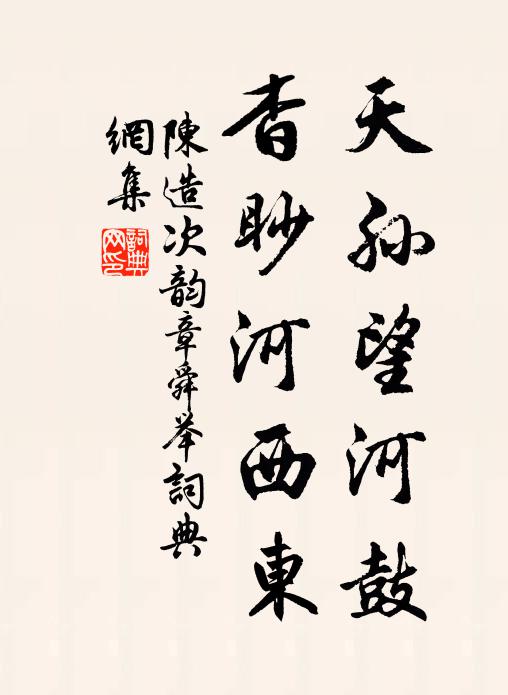 天孙望河鼓
杳眇河西東
陳造次韵章舜举詞典
網集
詞典網印